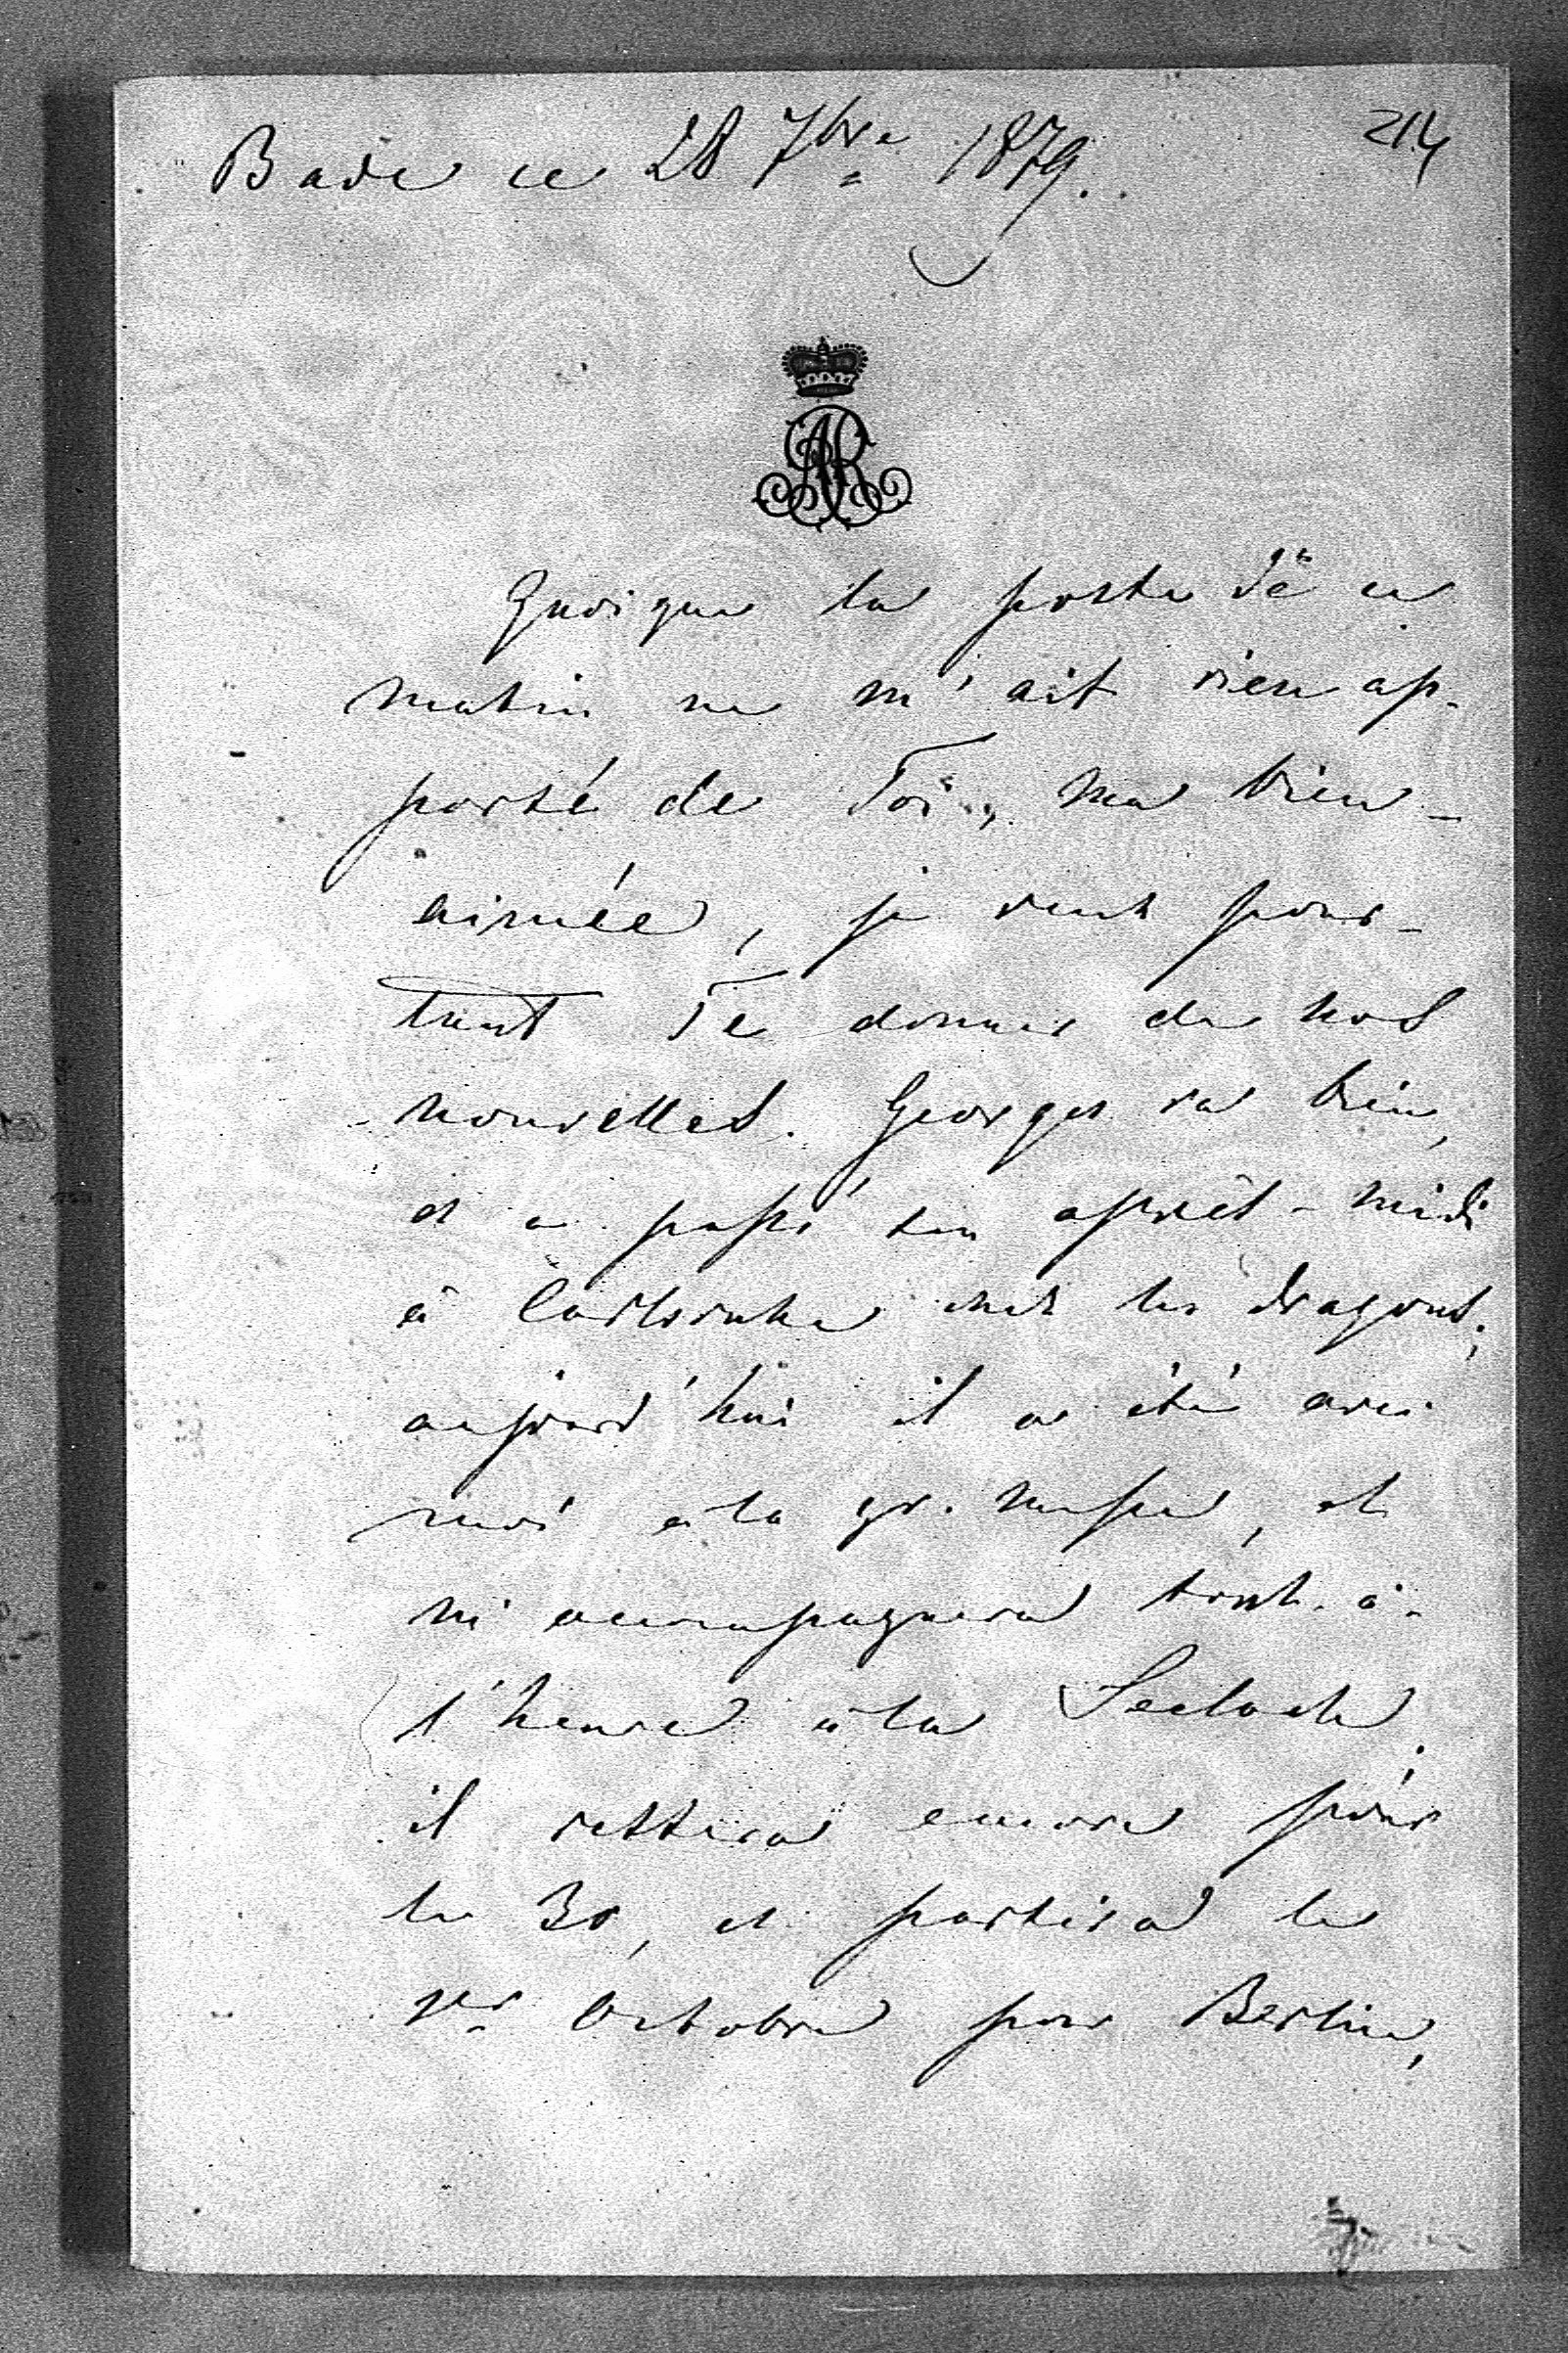 Bade ce 28 7bre 1879.
214
AR
Quoique la poste de ce
matin ne m'ait rien ap-
porté de Toi, ma bien-
aimée, je veux pour-
tant Te donner de nos
nouvelles. Georges va bien,
et a passé son après-midi
à Carlsruhe chez les dragons;
aujourd'hui il a été avec
moi à la gr. messe, et
m'accompagnera tout-à-
l'heure à la Seelach.
il restera encore pour
le 30, et partira le
1er Octobre pour Berlin,